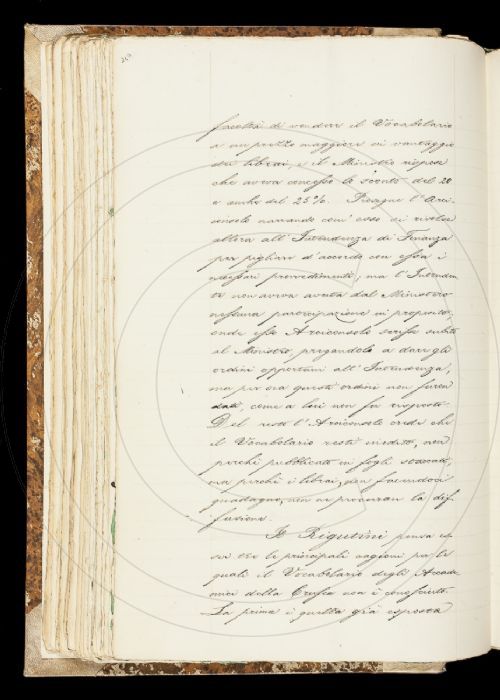 249
facoltà di vendere il Vocabolario
a un prezzo maggiore in vantaggio
dei librai, e il Ministro rispose
che aveva concesso lo sconto del 20
e anche del 25%. Prosegue l'Arci-
consolo narrando com'esso si rivolse
allora all'Intendenza di Finanza
per pigliare d'accordo con essa i
necessari provvedimenti, ma l'Intenden
te non aveva avuta dal Ministero
nessuna partecipazione in proposito,
onde esso Arciconsolo scrisse subito
al Ministro, pregandolo a dare gli
ordini opportuni all'Intendenza,
ma per ora questi ordini non furon
dati, come a lui non fu risposto.
Del resto l'Arciconsolo crede che
il Vocabolario resti inedito, non
perché pubblicato in fogli staccati,
ma perché i librai, non facendovi
guadagno, non ne procuran la dif-
fusione.
Il Rigutini pensa es-
ser tre le principali cagioni per le
quali il Vocabolario degli Accade
mici della Crusca non è conosciuto.
La prima è quella già esposta